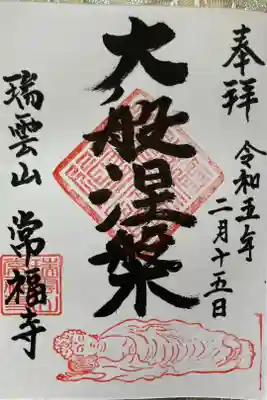 奉拝
令和五年
二月十五日
大般涅槃
瑞雲山
常福寺